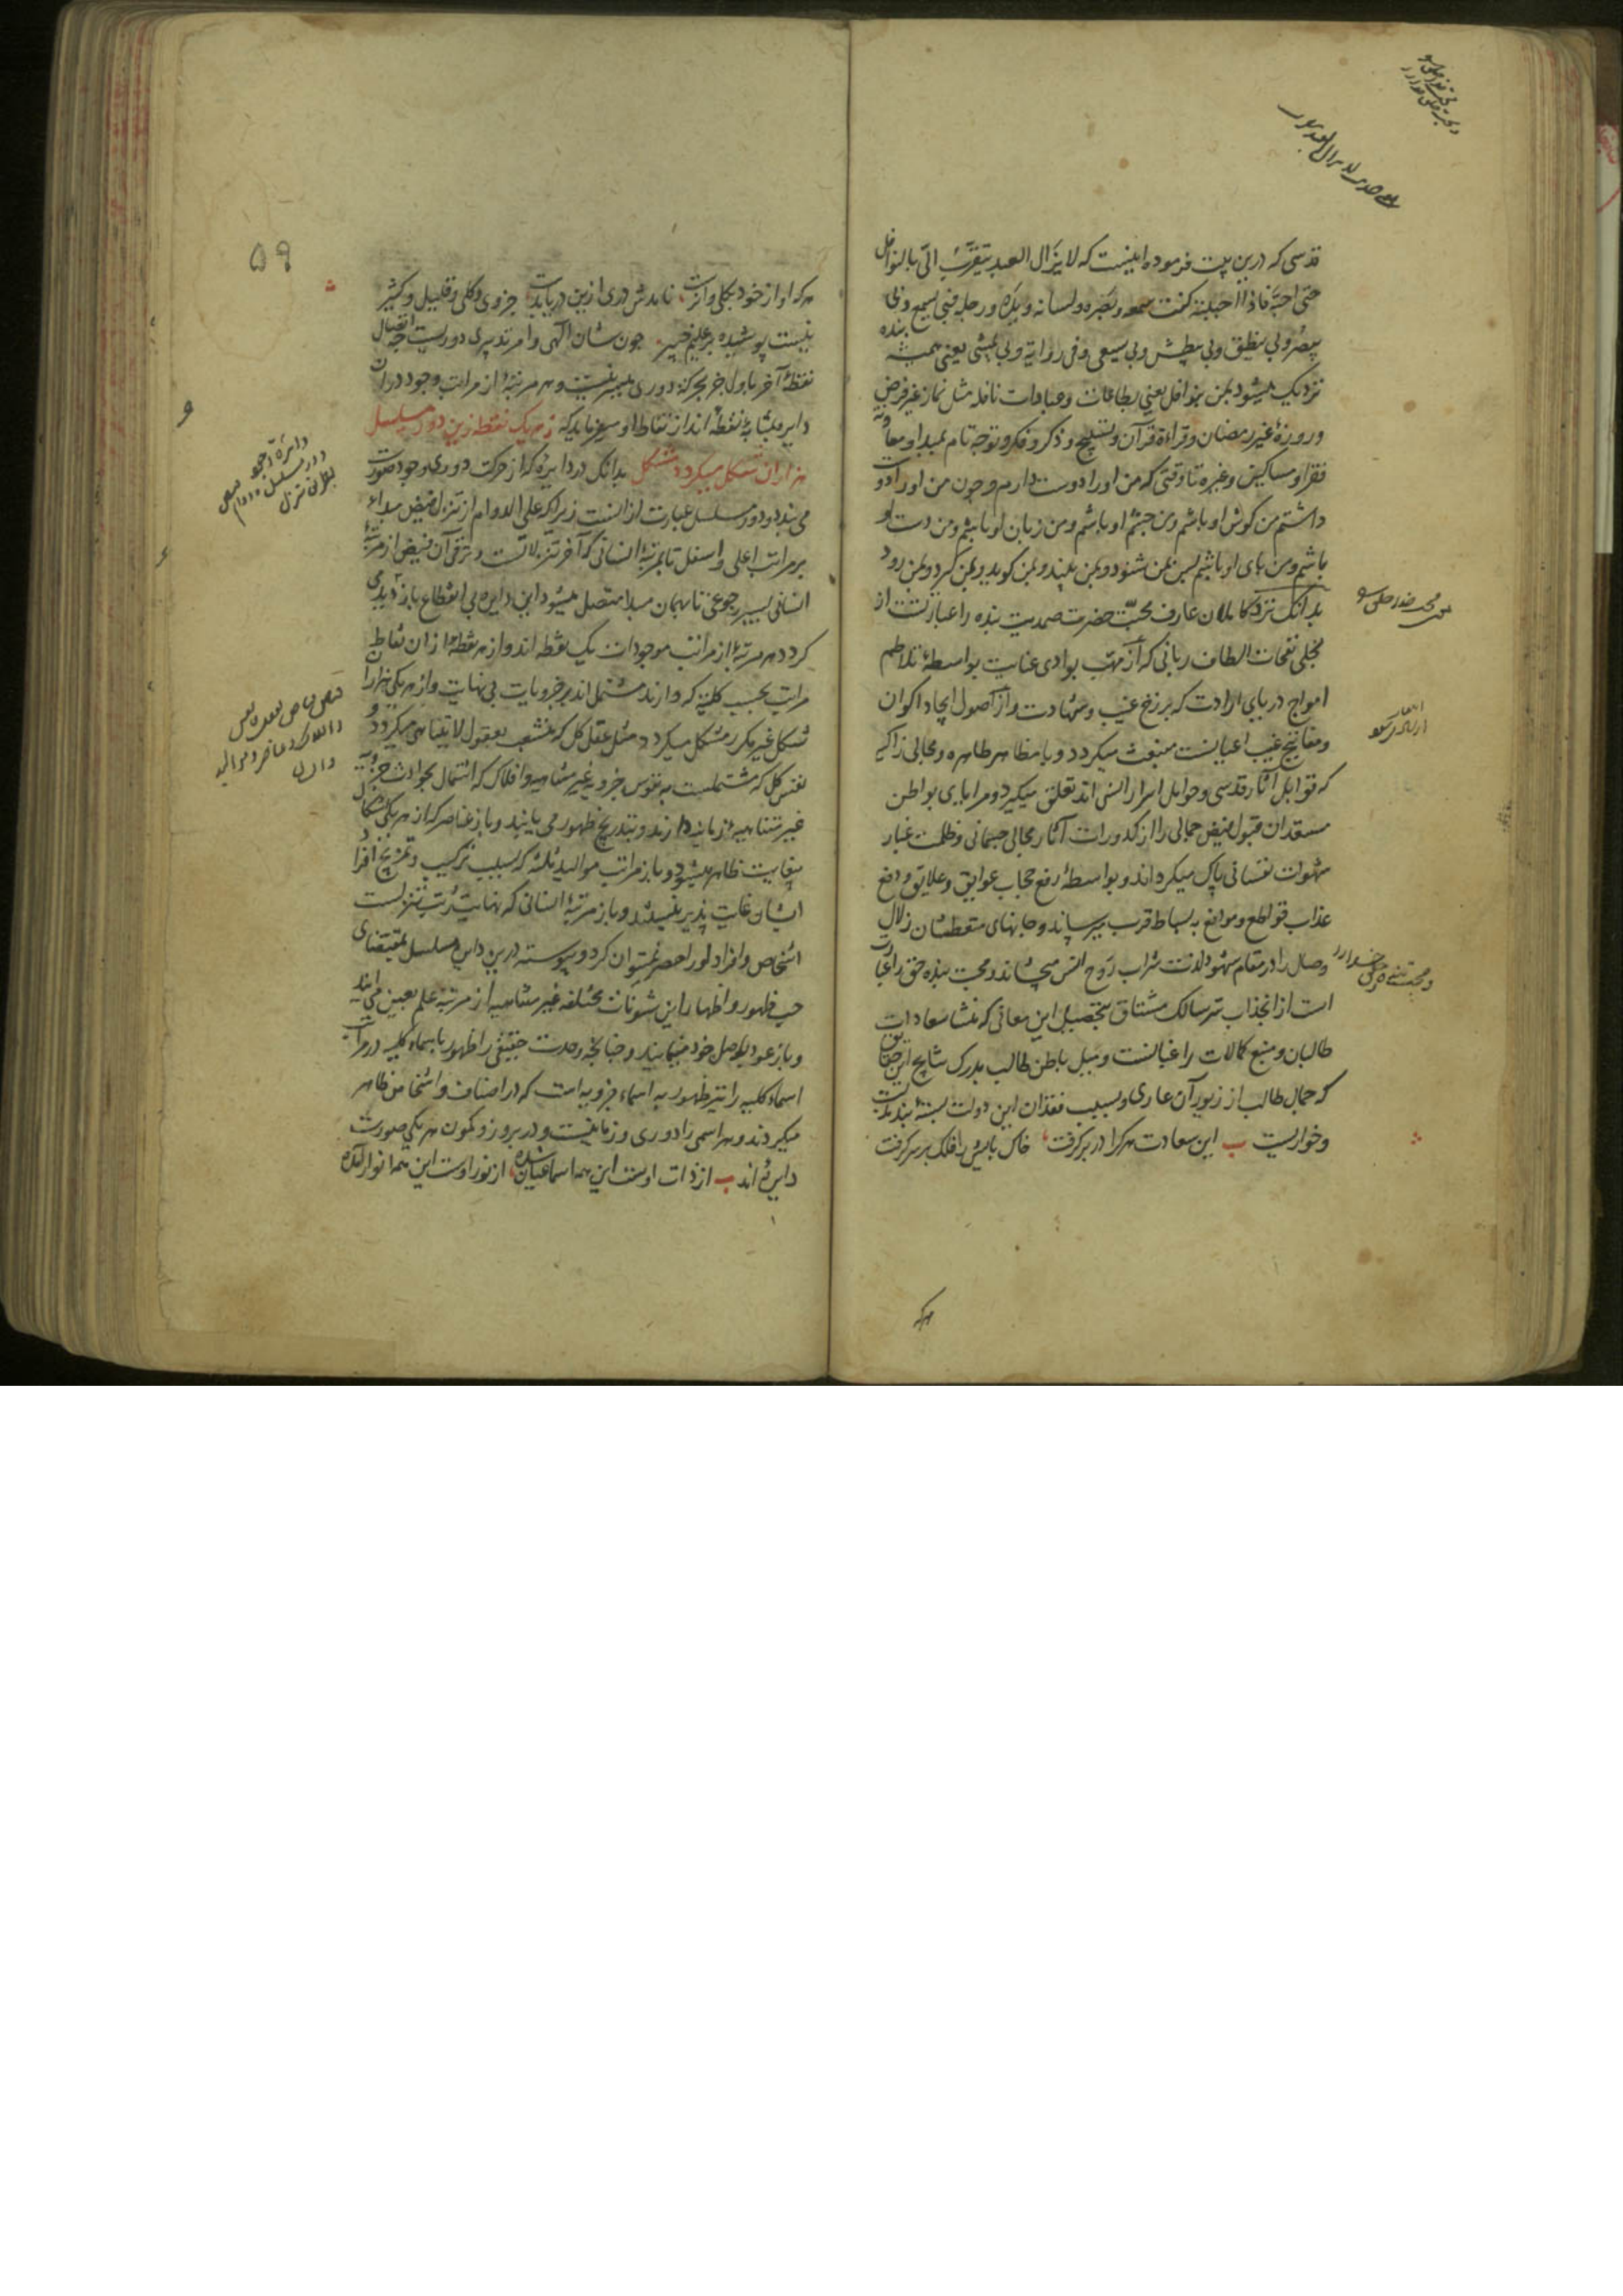 قدسی که درین بیت فرموده اینست که لایزال العبد یتقرب الیّ بالنوافل
حتی احبّه فاذا احببته کنت سمعه و بصره و لسانه و یده و رجله فبی یسمع و بی
یبصر و بی ینطق و بی یبطش و بی یسعی و فی روایة و بی یمشی یعنی همیشه بنده
نزدیک میشود بمن بنوافل یعنی بطاعات و عبادات نافله مثل نماز غیر فرض
و روزهٔ غیر رمضان و قراءة قرآن و تسبیح و ذکر و فکر و توجه تام بمبدا و معاونة
فقرا و مساکین و غیره تا وقتی که من او را دوست دارم و چون من او را دوست
داشتم من گوش او باشم و من چشم او باشم و من زبان او باشم و من دست او
باشم و من پای او باشم پس بمن شنود و بمن بیند و بمن گوید و بمن گیرد و بمن رود
بدانک نزد کاملان عارف محبّت حضرت صمدیت بنده را عبارتست از
تجلی نفحات الطاف ربانی که از مهب بوادی عنایت بواسطهٔ تلاطم
امواج دریای ارادت که برزخ غیب و شهادت و از اصول ایجاد اکوان
و مفاتیح غیب اعیانست منبعث میگردد و بامظاهر طاهره و مجالی زاکیه
که قوابل آثار قدسی و حوامل اسرار انس اند تعلق میگیرد و مرایای بواطن
مستعدان قبول فیض جمالی را از کدورات آثار مجالی جسمانی و ظلمت غبار
شهوات نفسانی پاک میگرداند و بواسطهٔ رفع حجاب عوایق و علایق و دفع
عذاب قواطع و موانع به بساط قرب میرساند و جانهای متعطشان زلال
وصال را در مقام شهود لذت شراب روح انس میچشاند و محبت بنده حق را عبارت
است از انجذاب سر سالک مشتاق بتحصیل این معانی که منشا سعادات
طالبان و منبع کمالات راغبانست و میل باطن طالب بدرک نتایج این حقایق
که جمال طالب از زیور آن عاری و بسبب فقدان این دولت بستهٔ بند مذلت
و خواریست ب این سعادت هرکرا در بر گرفت خاک پایش را فلک بر سر گرفت
هرکه
۵۹
هرکه او از خود بکلی وانرست نایدش دری ازین دریا بدست جزوی و کلی و قلیل و کثیر
نیست پوشیده بر علیم خبیر چون شان الهی و امر تدبیری دوریست جه اتصال
نقطهٔ آخر باول جز بحرکة دوری میسر نیست و هر مرتبهٔ از مراتب وجود دران
دایره بمثابهٔ نقطهٔ اند از نقاط او میفرماید که ز هر یک نقطه زین دور مسلسل
هزاران شکل میگردد مشکل بدانک در دایرهٔ که از حرکت دوری وجود صورت
می بندد و دور مسلسل عبارت از انست زیرا که علی الدوام از تنزل فیض مبدا
بر مراتب اعلی و اسفل تا بمرتبهٔ انسانی که آخر تنزلاتست و ترقی آن فیض از مرتبهٔ
انسانی بسیر رجوعی تا بهمان مبدا متصل میشود این دایره بی انقطاع باز پدید می
کردد هر مرتبهٔ از مراتب موجودات یک نقطه اند و از هر نقطهٔ از ان نقاط
مراتب بحسب کلیتی که دارند مشتمل اند بر جزویات بی نهایت و از هر یکی هزاران
شکل غیر مکرر مشکل میگردد مثل عقل کل که منشعب بعقول لایتناهی میگردد و
نفس کل که مشتملست به نفوس جزویه غیر متناهیه و افلاک که اشتمال بحوادث جزویه
غیر متناهیه زمانیه دارند و بتدریج ظهور می یابند و باز عناصر که از هر یکی اشکال
بیغایت ظاهر میشود و باز مراتب موالید ثلثه که بسبب ترکیب و تمزیج افراد
ایشان غایت پذیر نیستند و باز مرتبهٔ انسانی که نهایت رتب تنزلست
اشخاص و افراد او را حصر نمیتوان کرد و پیوسته درین دایره مسلسل بمقتضای
حب ظهور و اظهار این شئونات مختلفه غیر متناهیه از مرتبهٔ علم بعین می آیند
و باز عود باصل خود مینمایند و چنانچه وحدت حقیقی را ظهور باسماء کلیه در مراتب
اسماء کلیه را نیز ظهور به اسماء جزویه است که در اصناف و اشخاص ظاهر
میگردند و هر اسمی را دوری و زمانیست و در بروز و کمون هر یکی صورت
دایرهٔ اند ب از ذات اوست این همه اسما عیان شده از نور اوست این همه انوار آمده